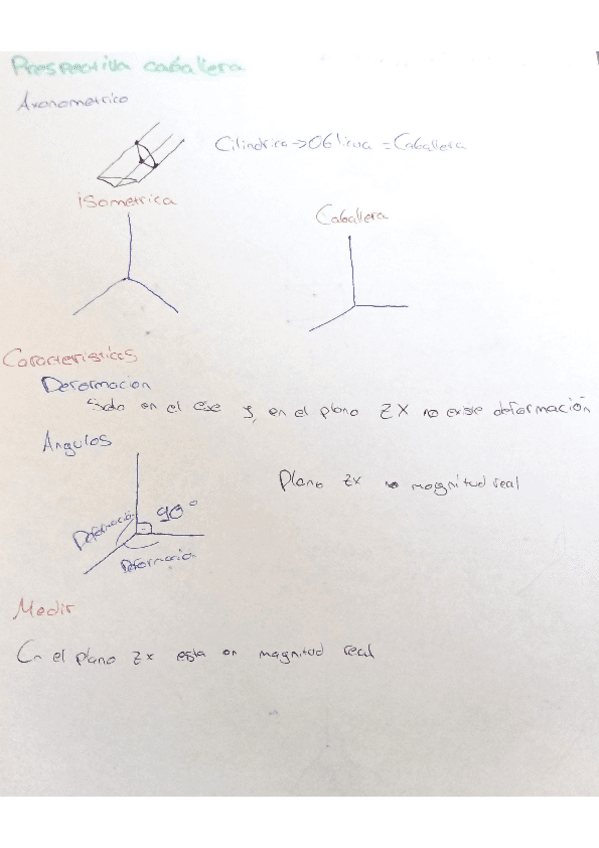 Prespectiva caballera
Axonometrico
Cilindrica → Oblicua = Caballera
isometrica
Caballera
Caracteristicas
Deformacion
Solo en el eje y, en el plano ZX no existe deformación
Angulos
Plano zx magnitud real
90°
Deformación
Deformacion
Medir
En el plano zx esta en magnitud real